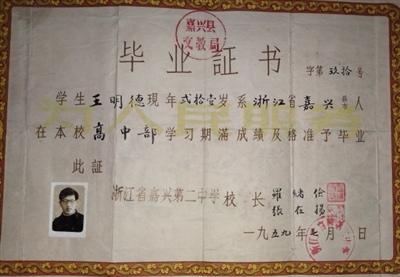 嘉兴县
文教局
毕业証书
字第玖拾号
学生王明德现年贰拾壹岁系浙江省嘉兴县市人
在本校高中部学习期满成绩及格准予毕业
此証
浙江省嘉兴第二中学校长
张在
一九五九年 月 日